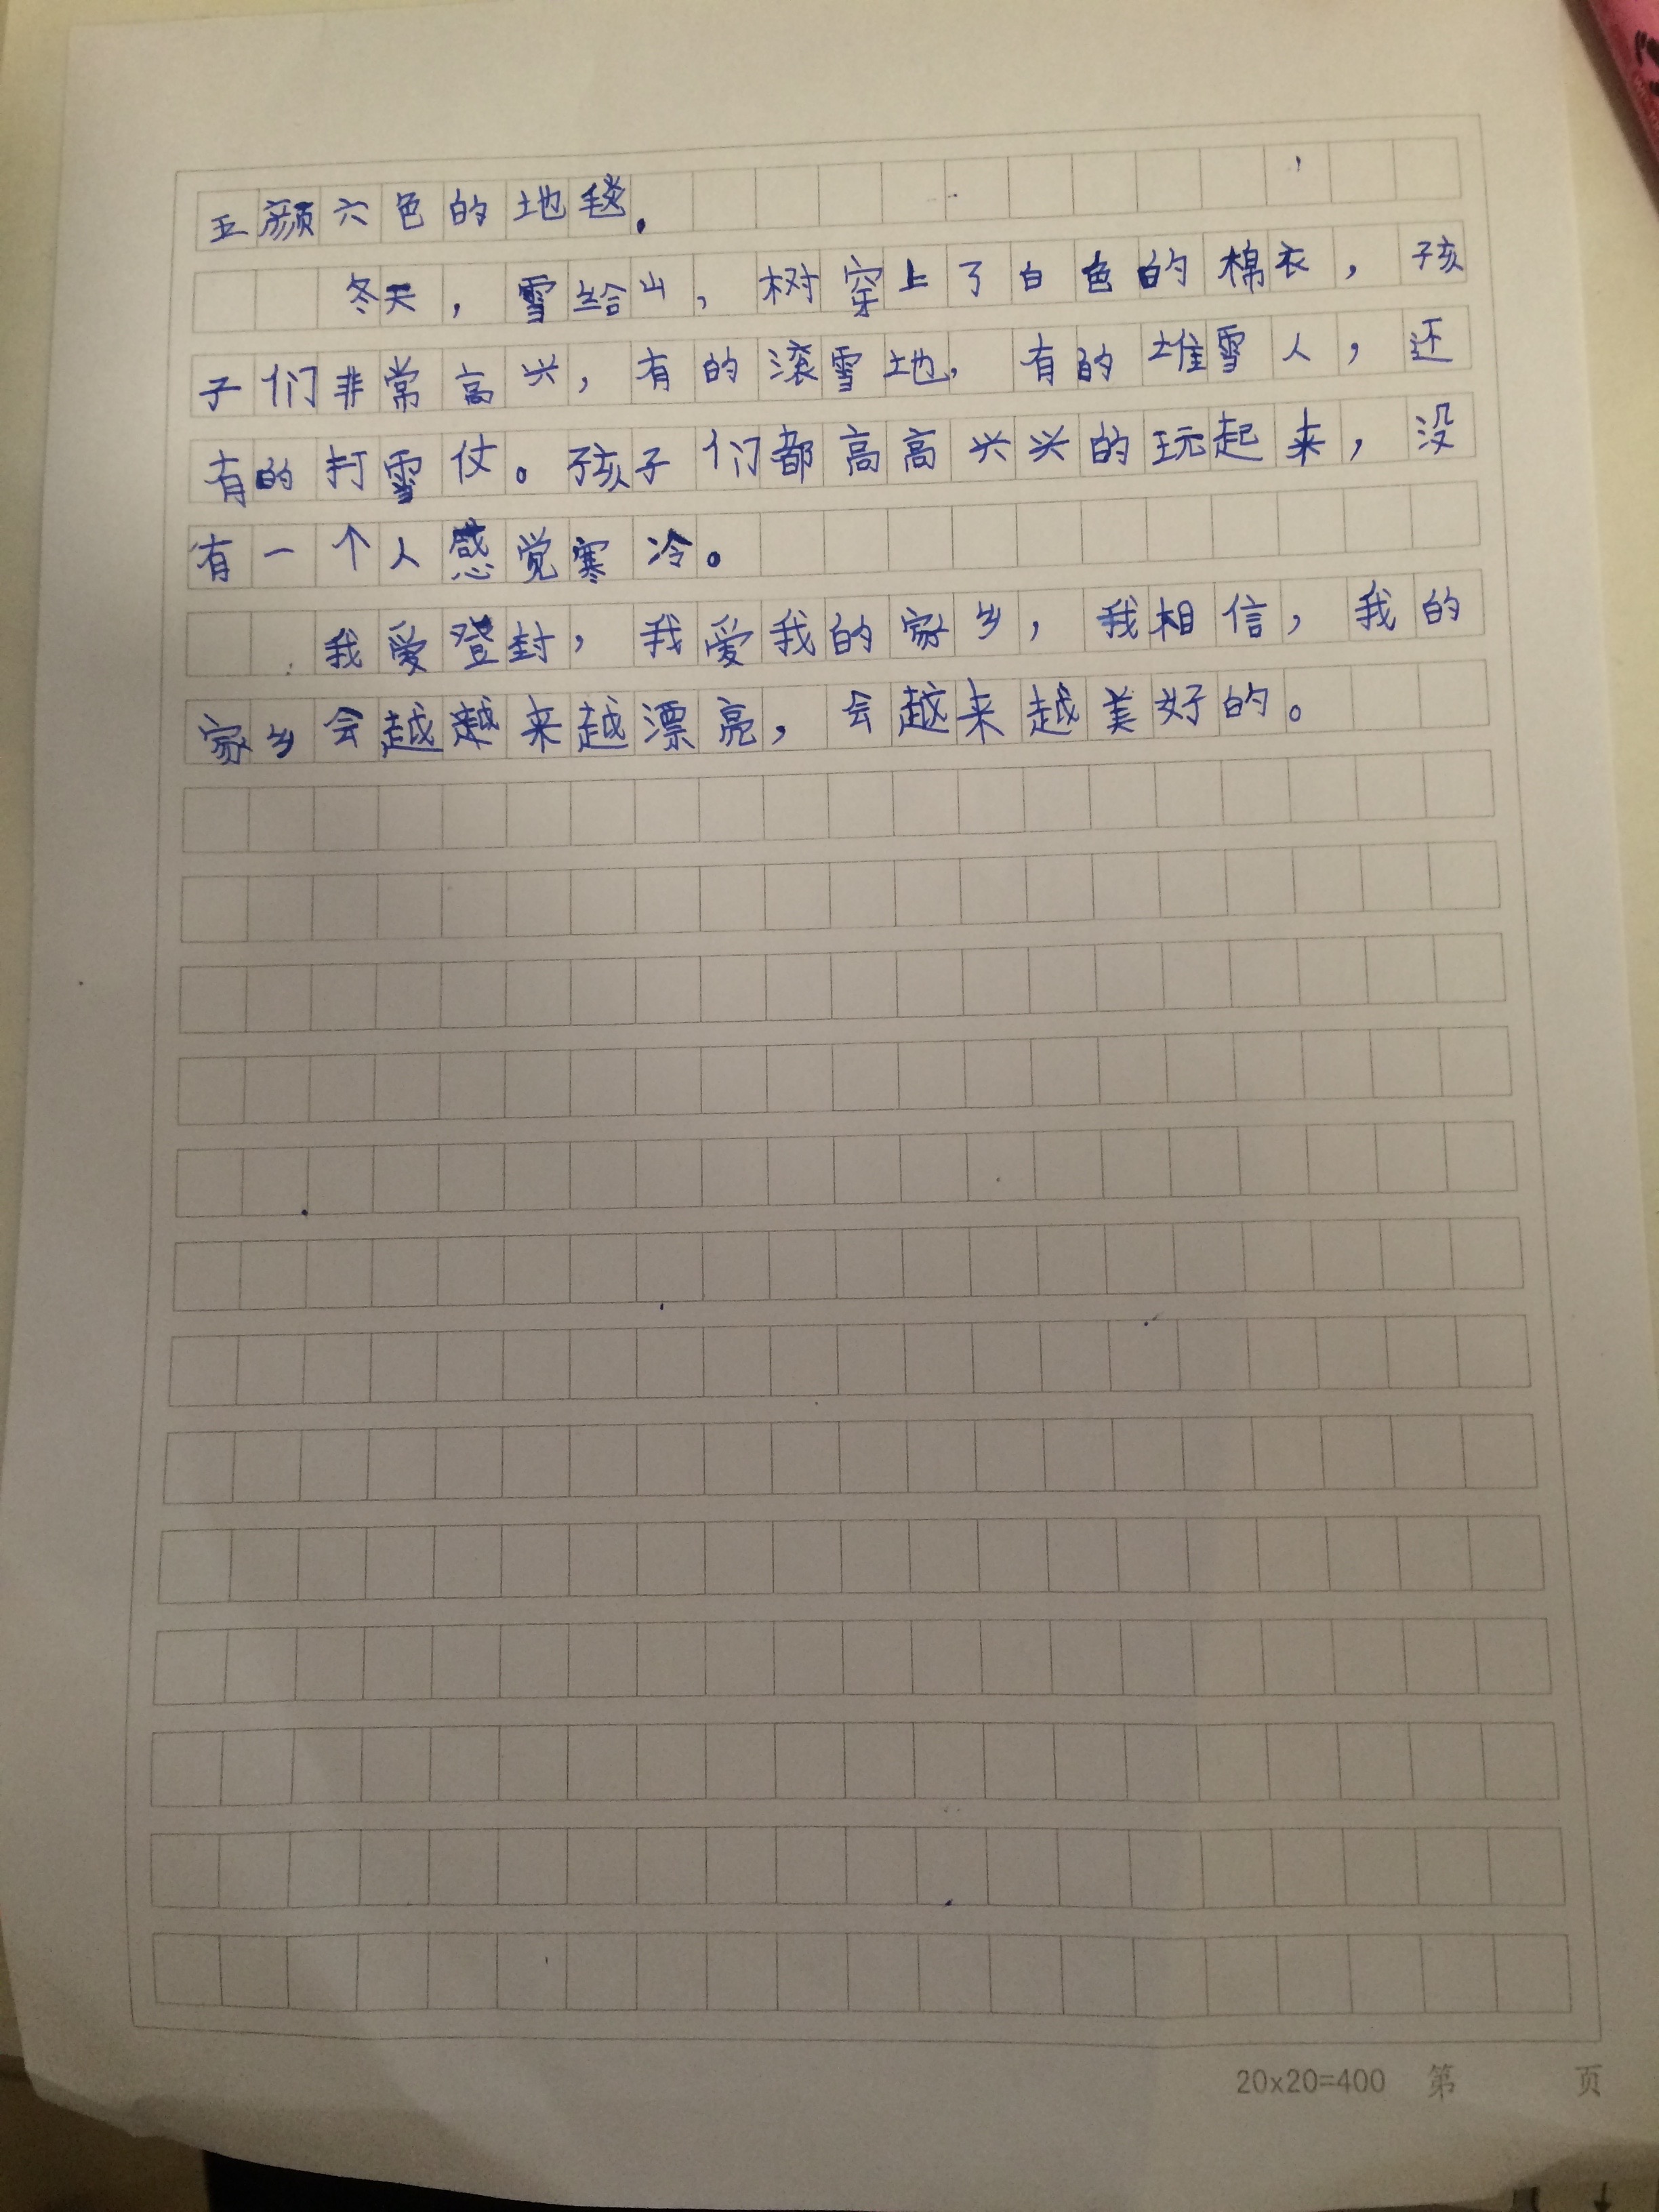 五颜六色的地毯。
冬天，雪给山，树穿上了白色的棉衣，孩
子们非常高兴，有的滚雪地，有的堆雪人，还
有的打雪仗。孩子们都高高兴兴的玩起来，没
有一个人感觉寒冷。
我爱登封，我爱我的家乡，我相信，我的
家乡会越越来越漂亮，会越来越美好的。
20x20=400 第 页